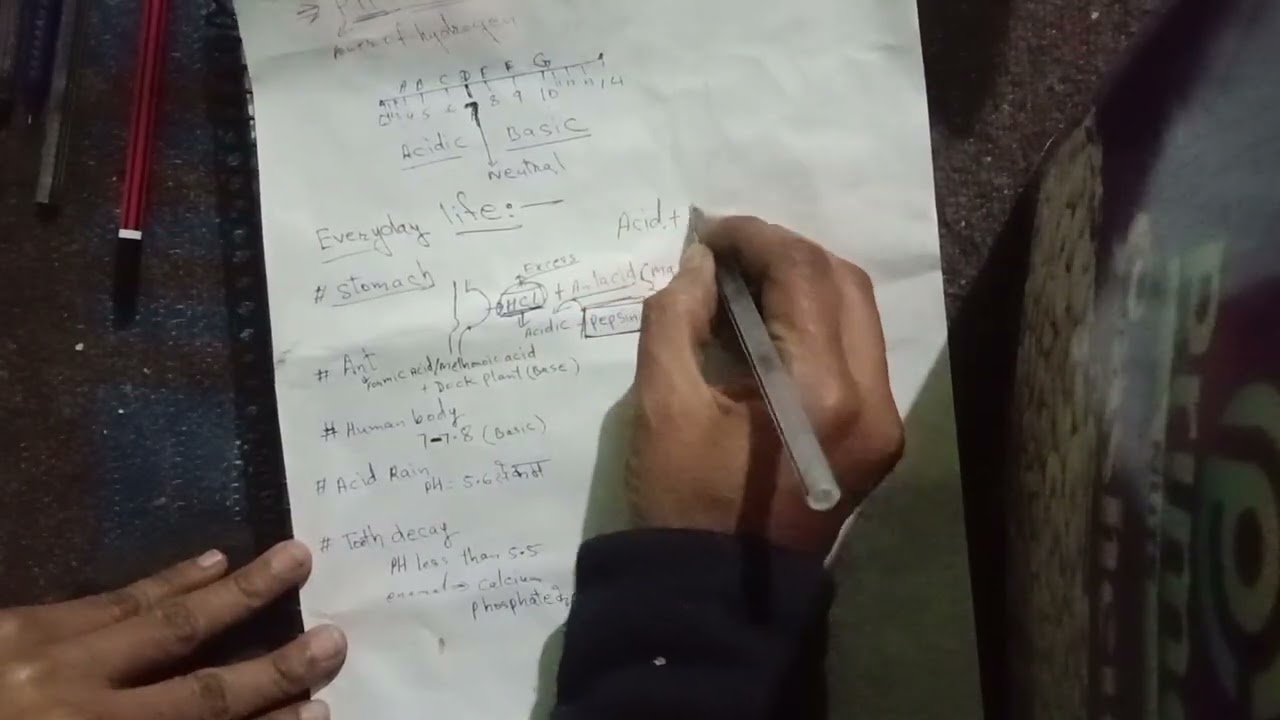 ⇒ PH
Power of hydrogen
A B C D E F G
5 6 7 8 9 10 14
Acidic Basic
Neutral
Everyday life:—
Acid +
# Stomach
Excess
HCl + Antacid (mg
Acidic pepsin
# Ant
Formic acid/methanoic acid
+ Dock plant (Base)
# Human body
7-7.8 (Basic)
# Acid Rain
PH = 5.6
# Tooth decay
PH less than 5.5
enamel → calcium
phosphate